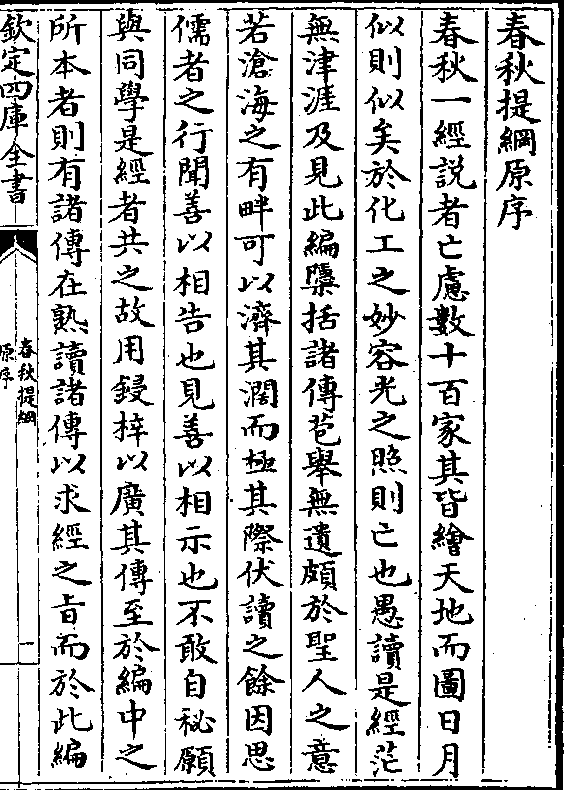 春秋提綱原序
春秋一經説者亡慮數十百家其皆繪天地而圖日月
似則似矣於化工之妙容光之照則亡也愚讀是經茫
無津涯及見此編檃括諸傳苞舉無遺頗於聖人之意
若滄海之有畔可以濟其濶而極其際伏讀之餘因思
儒者之行聞善以相告也見善以相示也不敢自秘願
與同學是經者共之故用鋟梓以廣其傳至於編中之
所本者則有諸傳在熟讀諸傳以求經之㫖而於此編
欽定四庫全書
春秋提綱
原序
一